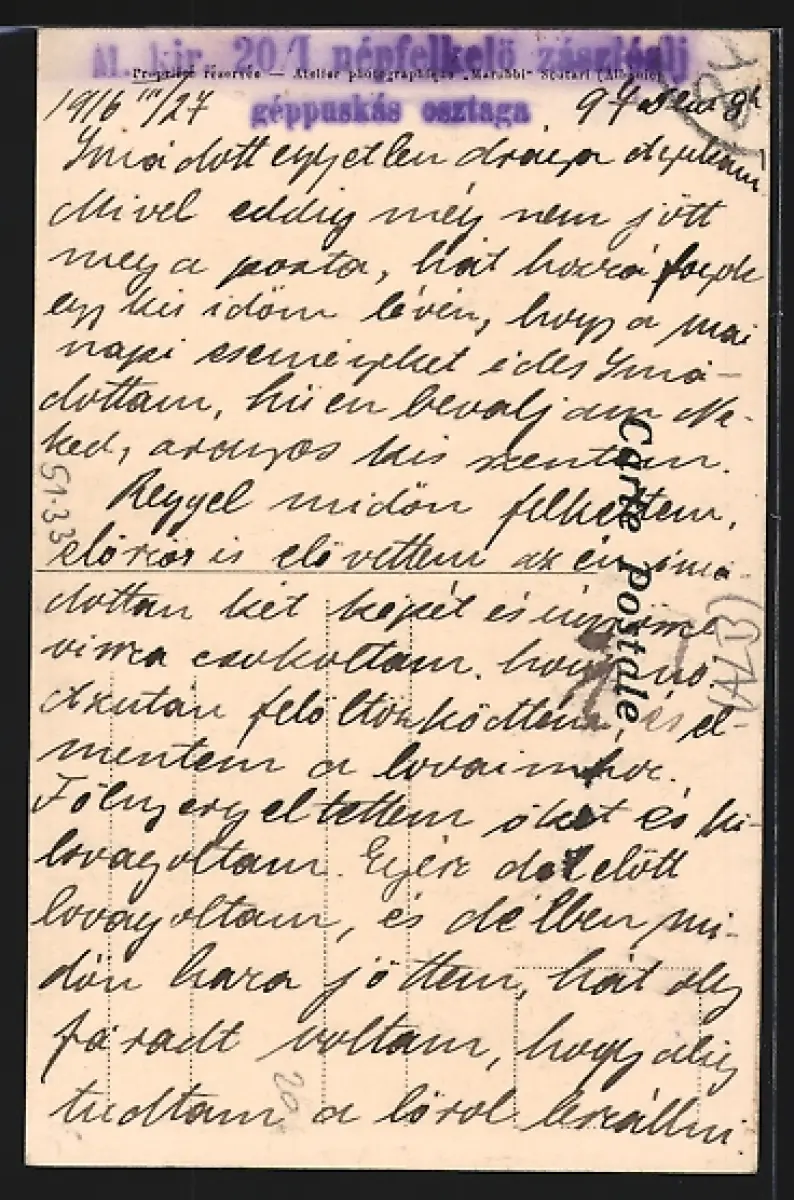 M. kir. 20/I népfelkelő zászlóalj
Propriété réservée — Atelier photographique „Marubbi" Scutari (Albanie)
géppuskás osztaga
1916 III/27
Imádott egyetlen drága Apukám
Mivel eddig még nem jött
meg a posta, hát hozzáfogok
egy kis időm lévén, hogy a mai
napi eseményeket édes Imá-
dottam, hűen bevaljam Ne-
ked, aranyos kis szentem.
Reggel midőn felkeltem,
először is elővettem az én imá-
dottan két képét és
vissza csokoltam.
Azután felöltözködtem, és el-
mentem a lovaimhoz.
Fölnyergeltettem őket és ki-
lovagoltam. Egész délelőtt
lovagoltam, és délben mi-
dőn haza jöttem, hát oly
fáradt voltam, hogy alig
tudtam a lóról leszállni
Carte Postale
51-33
20